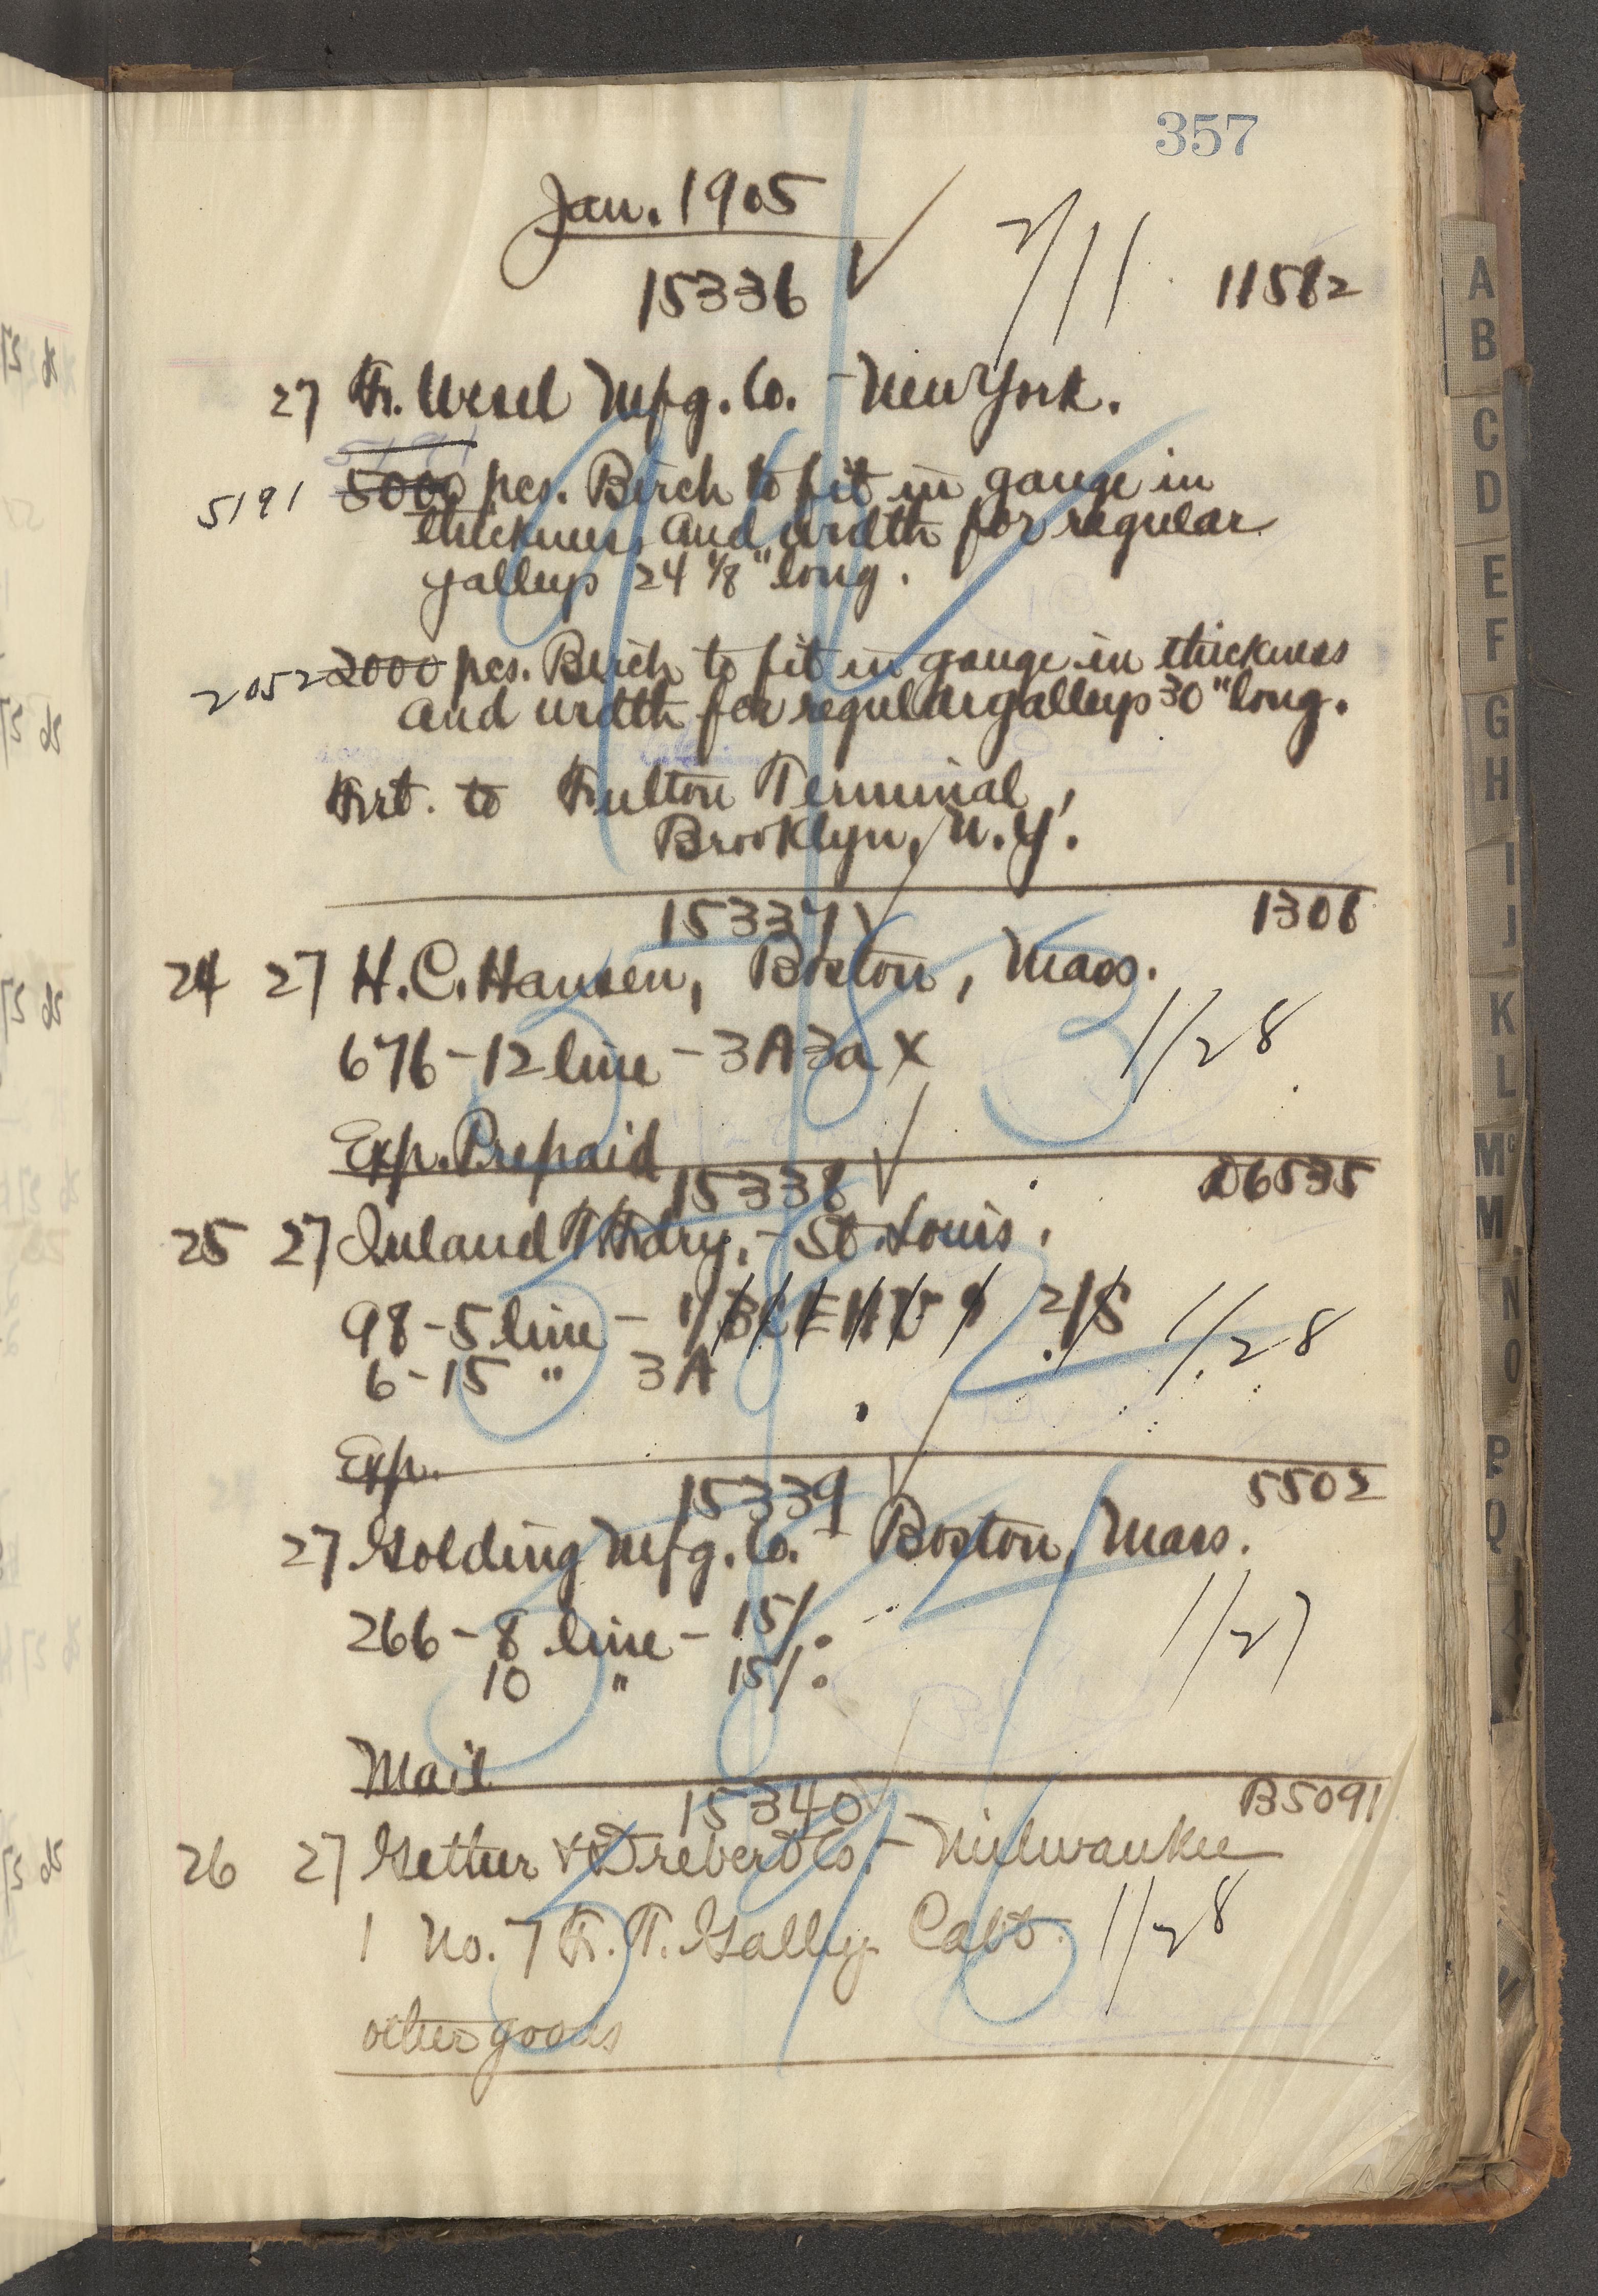 357
Jan. 1905
15336 2/11 11582
27 F. Wesel Mfg. Co. - New York.
5191
5191 5000 pcs. Birch to fit in gauge in
thickness and width for regular
galleys 24 4/8" long.
2052 2000 pcs. Birch to fit in gauge in thickness
and width for regular galleys 30" long.
Frt. to Fulton Terminal,
Brooklyn, N.Y.
15337 1308
24 27 H.C. Hansen, Boston, Mass.
676 - 12 line - 3A 3a X 1/28
Exp. Prepaid
15338 D6535
25 27 Inland T Fdry. - St. Louis.
98 - 5 line - 1/ B C E H 2/S 1/28
6 - 15 " 3A
Exp.
15339 5502
27 Golding Mfg. Co. - Boston, Mass.
266 - 8 line - 15/. 1/27
10 " 15/.
Mail
15340 B5091
26 27 Gether & Drebert Co. - Milwaukee
1 No. 7 F. T. Galley Cabt. 1/28
other goods
A
B
C
D
E
F
G
H
I
J
K
L
Mc
M
N
O
P
Q